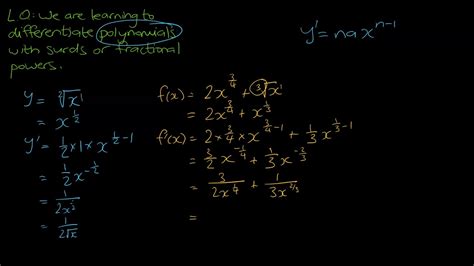 L.O: We are learning to
differentiate polynomials
with surds or fractional
powers.
y' = nax^{n-1}
y = ²√x¹
= x^{1/2}
y' = 1/2 × 1 × x^{1/2 - 1}
= 1/2 x^{-1/2}
= 1/(2x^{1/2})
= 1/(2√x)
f(x) = 2x^{3/4} + ³√x¹
= 2x^{3/4} + x^{1/3}
f'(x) = 2 × 3/4 × x^{3/4 - 1} + 1/3 x^{1/3 - 1}
= 3/2 x^{-1/4} + 1/3 x^{-2/3}
= 3/(2x^{1/4}) + 1/(3x^{2/3})
=